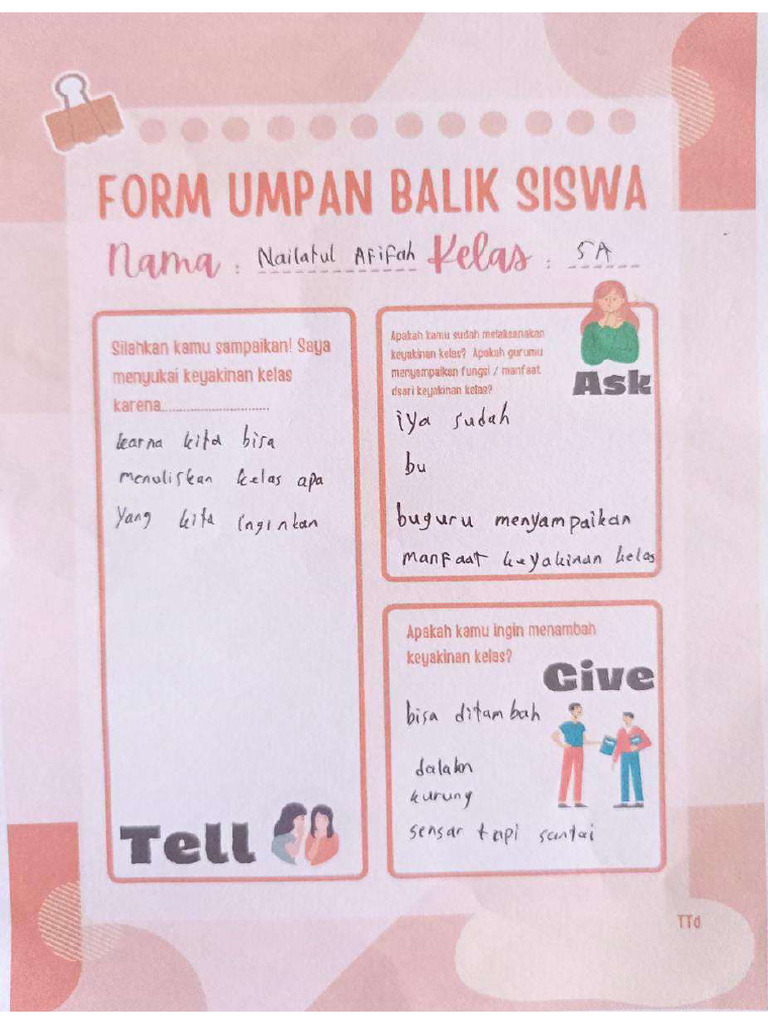 FORM UMPAN BALIK SISWA
Nama : Nailatul Afifah Kelas : 5A
Silahkan kamu sampaikan! Saya
menyukai keyakinan kelas
karena..............................
karna kita bisa
menuliskan kelas apa
yang kita inginkan
Tell
Apakah kamu sudah melaksanakan
keyakinan kelas? Apakah gurumu
menyampaikan fungsi / manfaat
dsari keyakinan kelas?
Ask
iya sudah
bu
buguru menyampaikan
manfaat keyakinan kelas
Apakah kamu ingin menambah
keyakinan kelas?
Give
bisa ditambah
dalam
kurung
sensar tapi santai
TTd